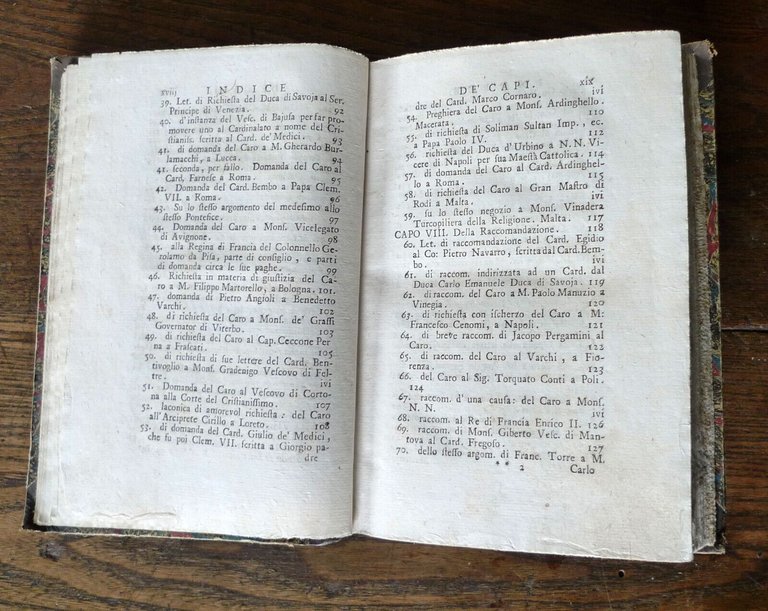 xviij INDICE
39. Let. di Richiesta del Duca di Savoja al Ser.
Principe di Venezia. 92
40. d'instanza del Vesc. di Bajusa per far pro-
movere uno al Cardinalato a nome del Cri-
stianiss. scritta al Card. de' Medici. 93
41. di domanda del Caro a M. Gherardo Bur-
lamacchi, a Lucca. 94
41. seconda, per fallo. Domanda del Caro al
Card. Farnese a Roma. 95
42. Domanda del Card. Bembo a Papa Clem.
VII. a Roma. 96
43. Su lo stesso argomento del medesimo allo
stesso Pontefice. 97
44. Domanda del Caro a Mons. Vicelegato
di Avignone. 98
45. alla Regina di Francia del Colonnello Ge-
rolamo da Pisa, parte di consiglio, e parti
di domanda circa le sue paghe. 99
46. Richiesta in materia di giustizia del Ca-
ro a M. Filippo Martorello, a Bologna. 101.
47. domanda di Pietro Angioli a Benedetto
Varchi. 102
48. di richiesta del Caro a Mons. de' Grassi
Governator di Viterbo. 103
49. di richiesta del Caro al Cap. Ceccone Per-
na a Frascati. 105
50. di richiesta di sue lettere del Card. Ben-
tivoglio a Mons. Gradenigo Vescovo di Fel-
tre. ivi
51. Domanda del Caro al Vescovo di Corto-
na alla Corte del Cristianissimo. 107
52. laconica di amorevol richiesta: del Caro
all'Arciprete Cirillo a Loreto. 108
53. di domanda del Card. Giulio de' Medici,
che fu poi Clem. VII. scritta a Giorgio pa-
dre
DE' CAPI. xix
dre del Card. Marco Cornaro. ivi
54. Preghiera del Caro a Mons. Ardinghello.
Macerata. 110
55. di richiesta di Soliman Sultan Imp., ec.
a Papa Paolo IV. 112
56. richiesta del Duca d'Urbino a N. N. Vi-
cere di Napoli per sua Maestà Cattolica. 114
57. di domanda del Caro al Card. Ardinghel-
lo a Roma. 115
58. di richiesta del Caro al Gran Mastro di
Rodi a Malta. ivi
59. su lo stesso negozio a Mons. Vinadera
Turcopiliera della Religione. Malta. 117
CAPO VIII. Della Raccomandazione. 118
60. Let. di raccomandazione del Card. Egidio
al Co: Pietro Navarro, scritta dal Card. Bem-
bo. ivi
61. di raccom. indirizzata ad un Card. dal
Duca Carlo Emanuele Duca di Savoja. 119
62. di raccom. del Caro a M. Paolo Manuzio a
Vinegia. 120
63. di richiesta con ischerzo del Caro a M:
Francesco Cenomi, a Napoli. 121
64. di breve raccom. di Jacopo Pergamini al
Caro. 122
65. di raccom. del Caro al Varchi, a Fio-
renza. 123
66. del Caro al Sig. Torquato Conti a Poli.
124
67. raccom. d'una causa: del Caro a Mons.
N. N. ivi
68. raccom. al Re di Francia Enrico II. 126
69. raccom. di Mons. Giberto Vesc. di Man-
tova al Card. Fregoso. 127
70. dello stesso argom. di Franc. Torre a M.
* * 2 Carlo